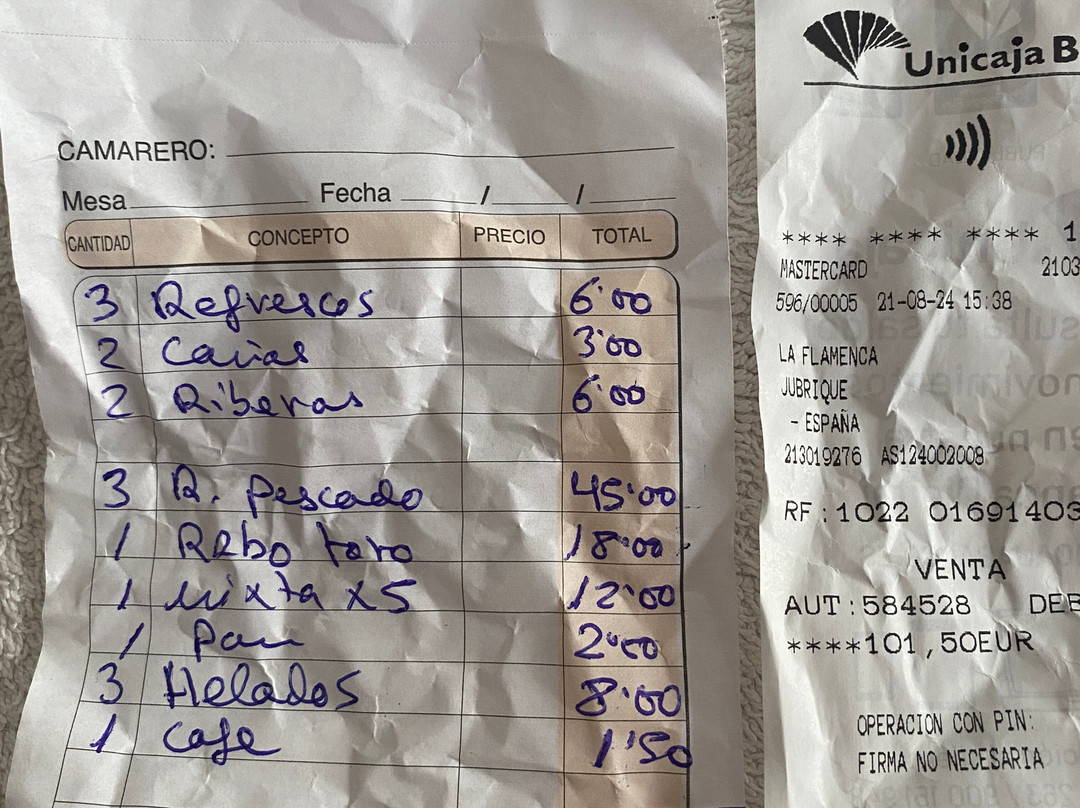 CAMARERO:
Mesa Fecha / /
CANTIDAD CONCEPTO PRECIO TOTAL
3 Refrescos 6'00
2 Cañas 3'00
2 Riberas 6'00
3 R. Pescado 45'00
1 Rabo toro 18'00
1 Mixta x5 12'00
1 Pan 2'00
3 Helados 8'00
1 Cafe 1'50
Unicaja B
**** **** **** 1
MASTERCARD 2103
596/00005 21-08-24 15:38
LA FLAMENCA
JUBRIQUE
- ESPAÑA
213019276 AS124002008
RF:1022 01691403
VENTA
AUT:584528 DEB
****101,50EUR
OPERACION CON PIN:
FIRMA NO NECESARIA